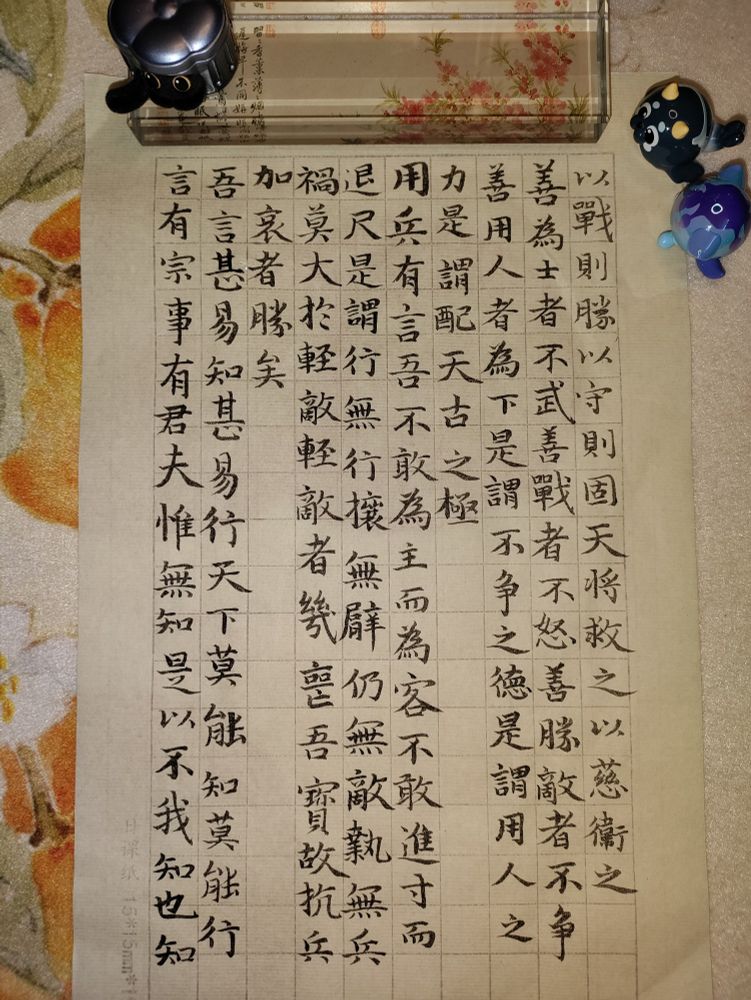 以戰則勝以守則固天将救之以慈衛之
善為士者不武善戰者不怒善勝敵者不争
善用人者為下是謂不争之德是謂用人之
力是謂配天古之極
用兵有言吾不敢為主而為客不敢進寸而
退尺是謂行無行攘無臂仍無敵執無兵
禍莫大於軽敵軽敵者幾喪吾寶故抗兵
加哀者勝矣
吾言甚易知甚易行天下莫能知莫能行
言有宗事有君夫惟無知是以不我知也知
日課纸 15*15mm*